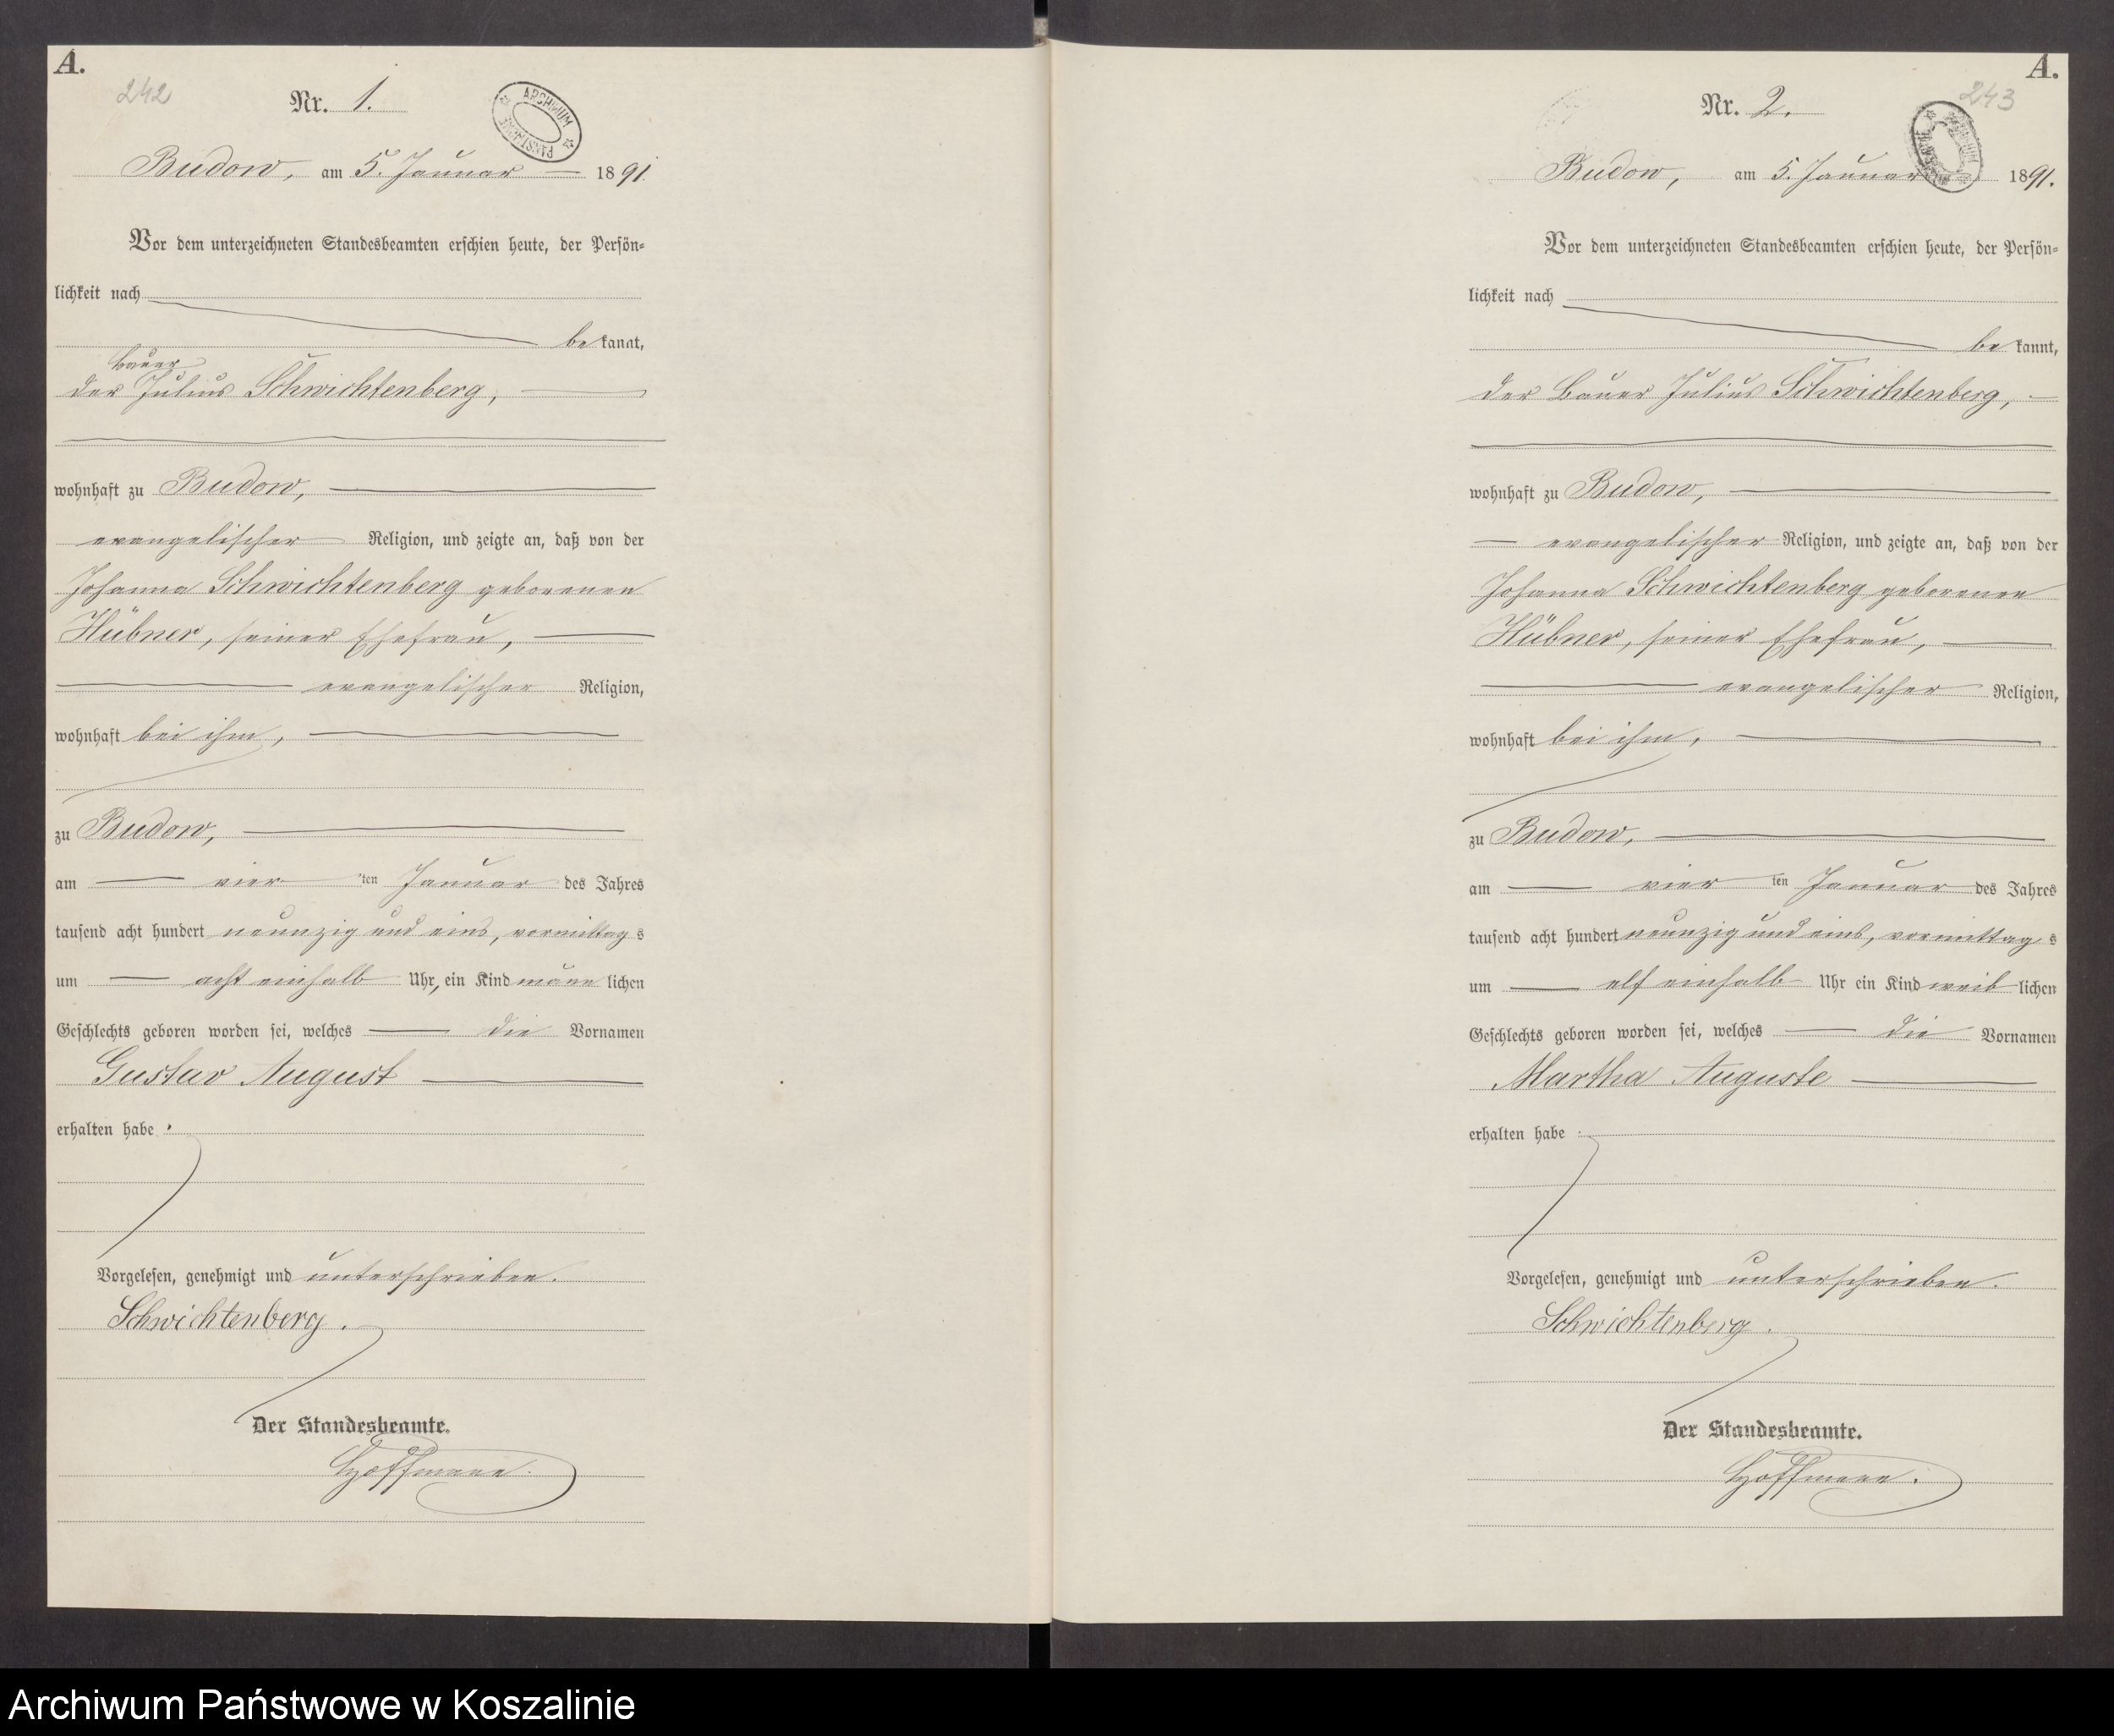 A.
242
Nr. 1.
ARCHIWUM
PAŃSTWOWE
Budow, am 5. Januar 1891.
Vor dem unterzeichneten Standesbeamten erschien heute, der Persön=
lichkeit nach
bekannt,
Bauer
der Julius Schwichtenberg,
wohnhaft zu Budow,
evangelischer Religion, und zeigte an, daß von der
Johanna Schwichtenberg geborenen
Hübner, seiner Ehefrau,
evangelischer Religion,
wohnhaft bei ihm,
zu Budow,
am vier ten Januar des Jahres
tausend acht hundert neunzig und eins, vormittags
um acht einhalb Uhr, ein Kind männlichen
Geschlechts geboren worden sei, welches die Vornamen
Gustav August
erhalten habe.
Vorgelesen, genehmigt und unterschrieben.
Schwichtenberg.
Der Standesbeamte.
Hoffmann.
A.
243
Nr. 2.
Budow, am 5. Januar 1891.
Vor dem unterzeichneten Standesbeamten erschien heute, der Persön=
lichkeit nach
bekannt,
der Bauer Julius Schwichtenberg,
wohnhaft zu Budow,
evangelischer Religion, und zeigte an, daß von der
Johanna Schwichtenberg geborenen
Hübner, seiner Ehefrau,
evangelischer Religion,
wohnhaft bei ihm,
zu Budow,
am vier ten Januar des Jahres
tausend acht hundert neunzig und eins, vormittags
um elf einhalb Uhr ein Kind weiblichen
Geschlechts geboren worden sei, welches die Vornamen
Martha Auguste
erhalten habe.
Vorgelesen, genehmigt und unterschrieben.
Schwichtenberg.
Der Standesbeamte.
Hoffmann.
Archiwum Państwowe w Koszalinie